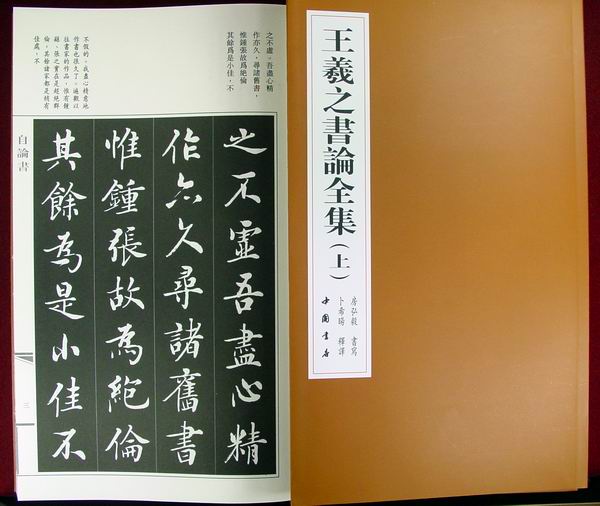 王羲之書論全集(上)
房弘毅 書寫
卜希暘 釋譯
中国書店
之不虛。吾盡心精
作亦久,尋諸舊書,
惟鍾張故爲絕倫
其餘爲是小佳,不
不假的。我盡心精意地
作書也很久了。遍觀以
往書家的作品,惟有鍾
繇、張之實在是超絕群
倫,其餘諸家都是稍有
佳處,不
之不虛吾盡心精
作亦久尋諸舊書
惟鍾張故為絕倫
其餘為是小佳不
自論書
三